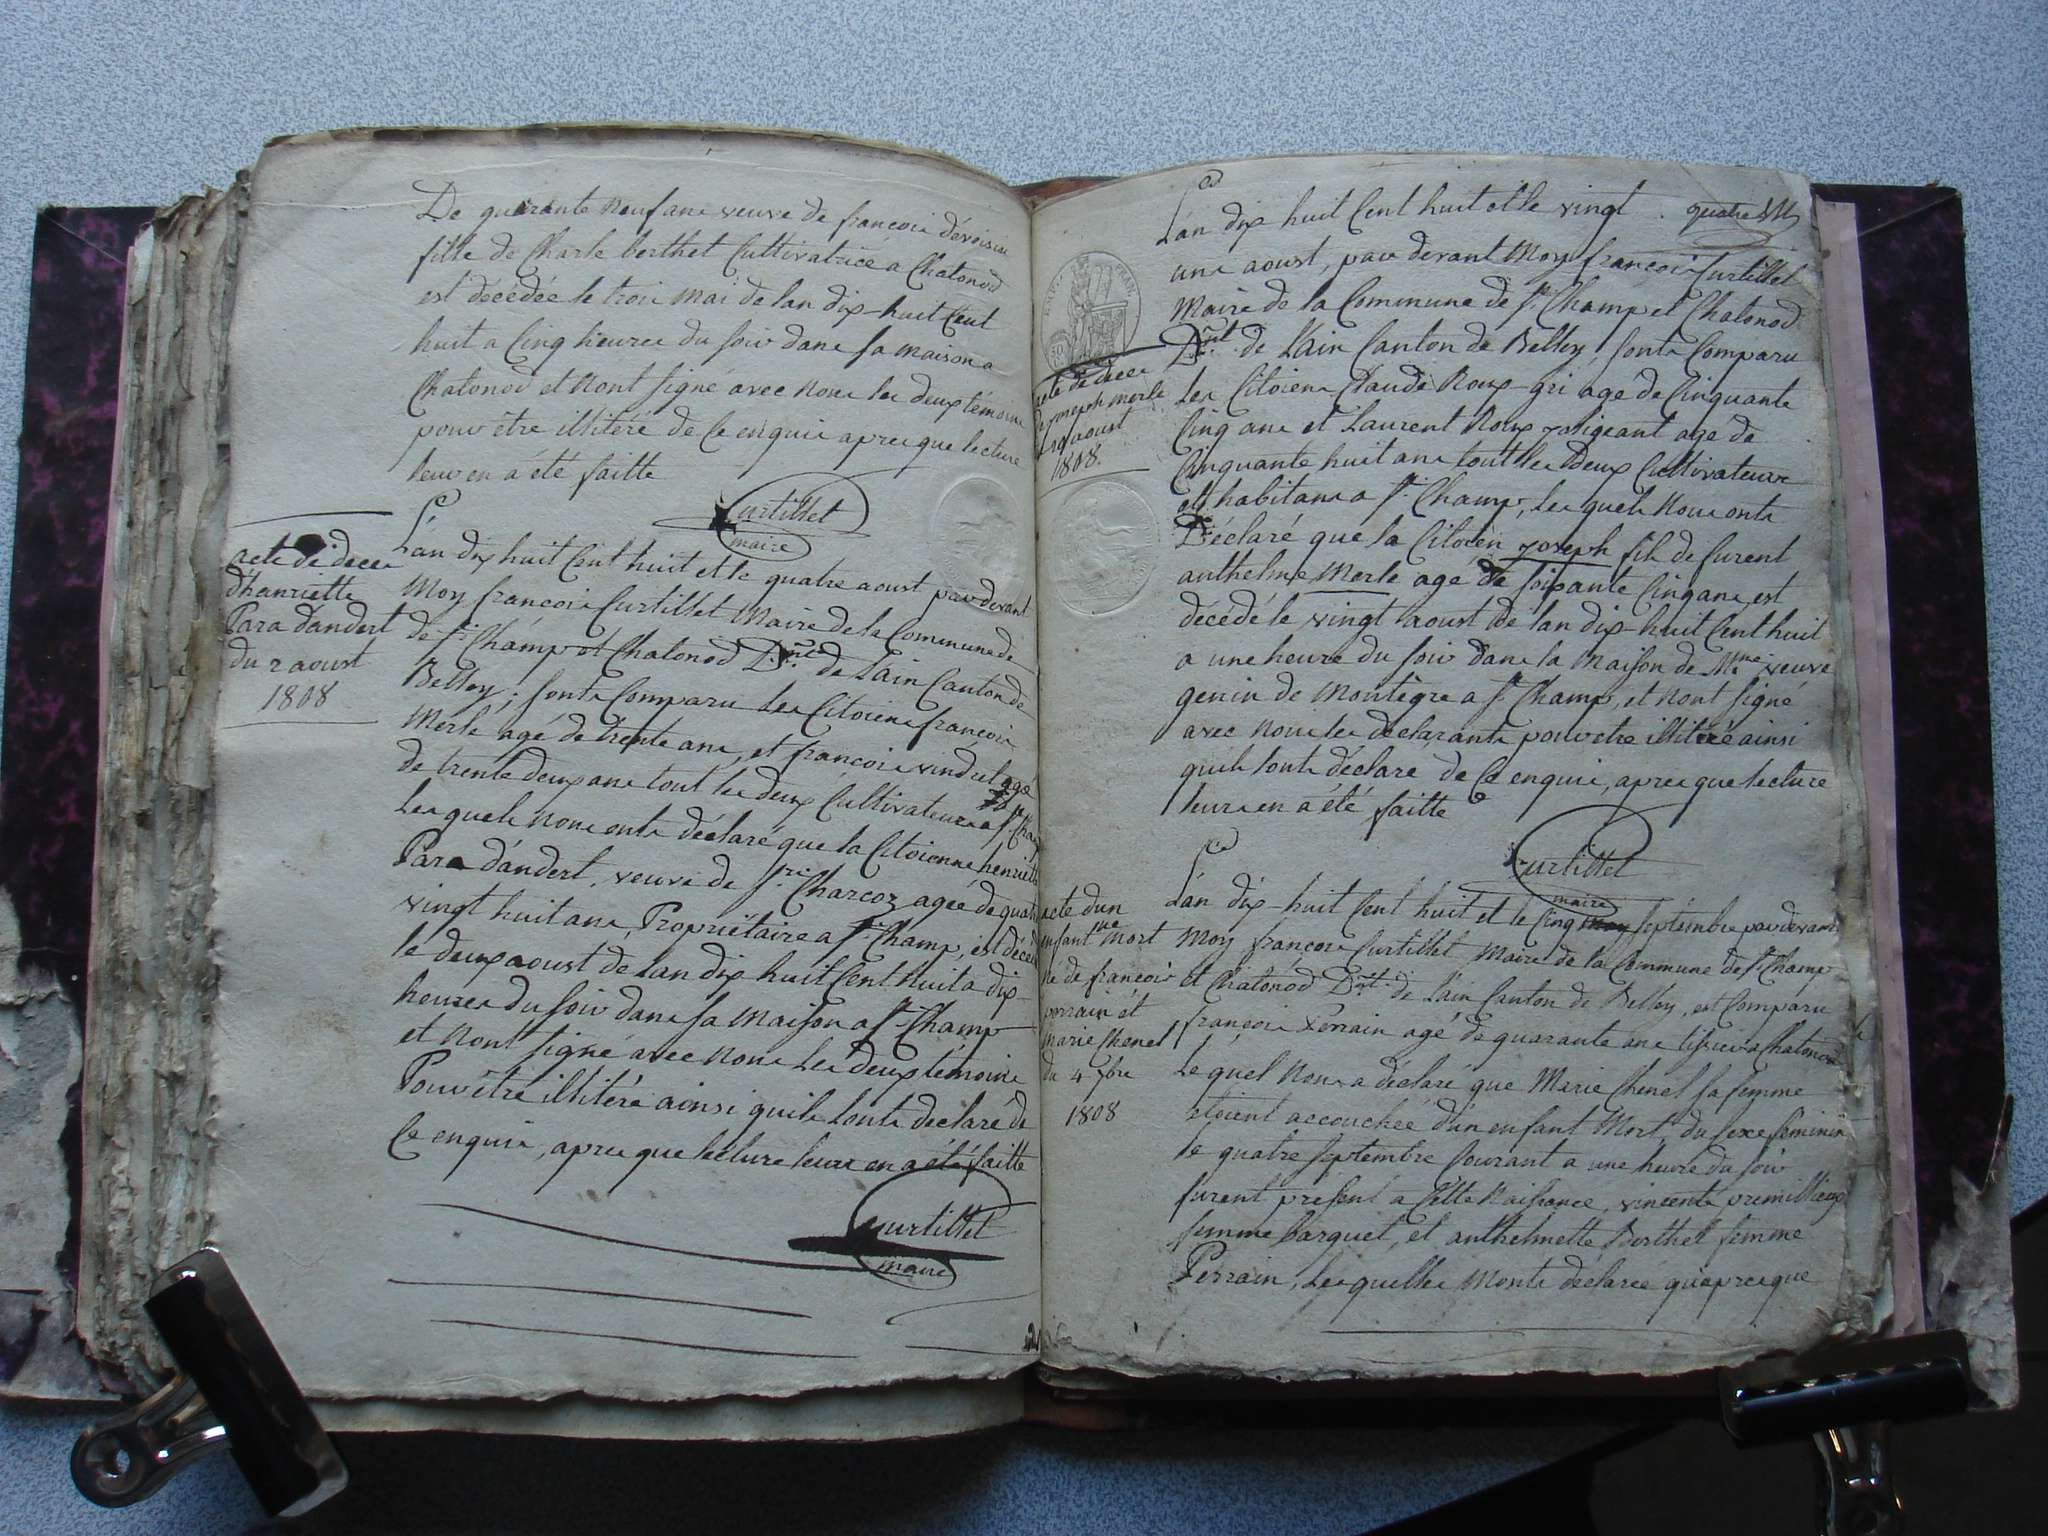 De quarante neuf ans veuve de françois dévoisin
fille de Charle berthet Cultivatrice a Chatonod
est décédée le trois mai de lan dix-huit Cent
huit a Cinq heures du soir dans sa maison a
Chatonod et nont signé avec nous les deux témoins
pour être illitéré de Ce enquis apres que lecture
leur en a été faitte
Curtillet
maire
acte de deces
d'hanriette
Para d'andert
du 2 aoust
1808
L'an dix huit Cent huit et le quatre aoust par devant
Moy françois Curtillet Maire de la Commune de
de St Champ et Chatonod D.nt de Lain Canton de
Belley; sonts Comparu Les Citoiens françois
Merle agé de trente ans, et françois vindret agé
de trente deux ans tout les deux Cultivateurs a St Champ
Les quels nous onts déclaré que la Citoienne henriette
Para d'andert, veuve de Charcoz agée de quatre
vingt huit ans, Propriëtaire a St Champ, est décédé
le deux aoust de lan dix huit Cent huit a dix
heures du soir dans sa maison a St Champ
et nont signé avec nous Les deux témoins
Pour être illitéré ainsi quils Lonts déclaré de
Ce enquis, apres que lecture leurs en a été faitte
Curtillet
maire
quatre
L'an dix huit Cent huit et le vingt
un aoust, par devant Moy françois Curtillet
Maire de la Commune de St Champ et Chatonod
D.nt de Lain Canton de Belley, sonts Comparu
Les Citoiens Claude Roux-gri age de Cinquante
Cinq ans et Laurent Roux age de
Cinquante huit ans tout les deux Cultivateurs
et habitans a St Champ, Les quels Nous onts
Déclaré que la Citoien yoseph fils de furent
anthelme Merle agé de soixante Cinq ans est
décédé le vingt aoust de lan dix-huit Cent huit
a une heure du soir dans la Maison de Mme veuve
genin de Montègre a St Champ, et nont signé
avec nous les déclarants pour etre illitéré ainsi
quils lonts déclare de Ce enquis, apres que lecture
leurs en a été faitte
Curtillet
maire
acte de deces
de yoseph merle
aoust
1808.
L'an dix-huit Cent huit et le Cinq septembre par devant
Moy françois Curtillet Maire de la Commune de St Champ
et Chatonod D.nt de Lain Canton de Belley, est Comparu
françois Perrain agé de quarante ans a Chatonod
Le quel Nous a déclaré que Marie Chenel sa femme
etoient accouchée d'un enfant Mort, du sexe feminin
le quatre septembre Courant a une heure du soir
furent present a Cette Naissance, vincente premillieux
femme barquet, et anthelmette Berthet femme
Perrain, Les quelles Monts déclarée qu'apres que
acte d'un
enfant mort
ne de françois
perrain et
Marie Chenel
du 4 7bre
1808